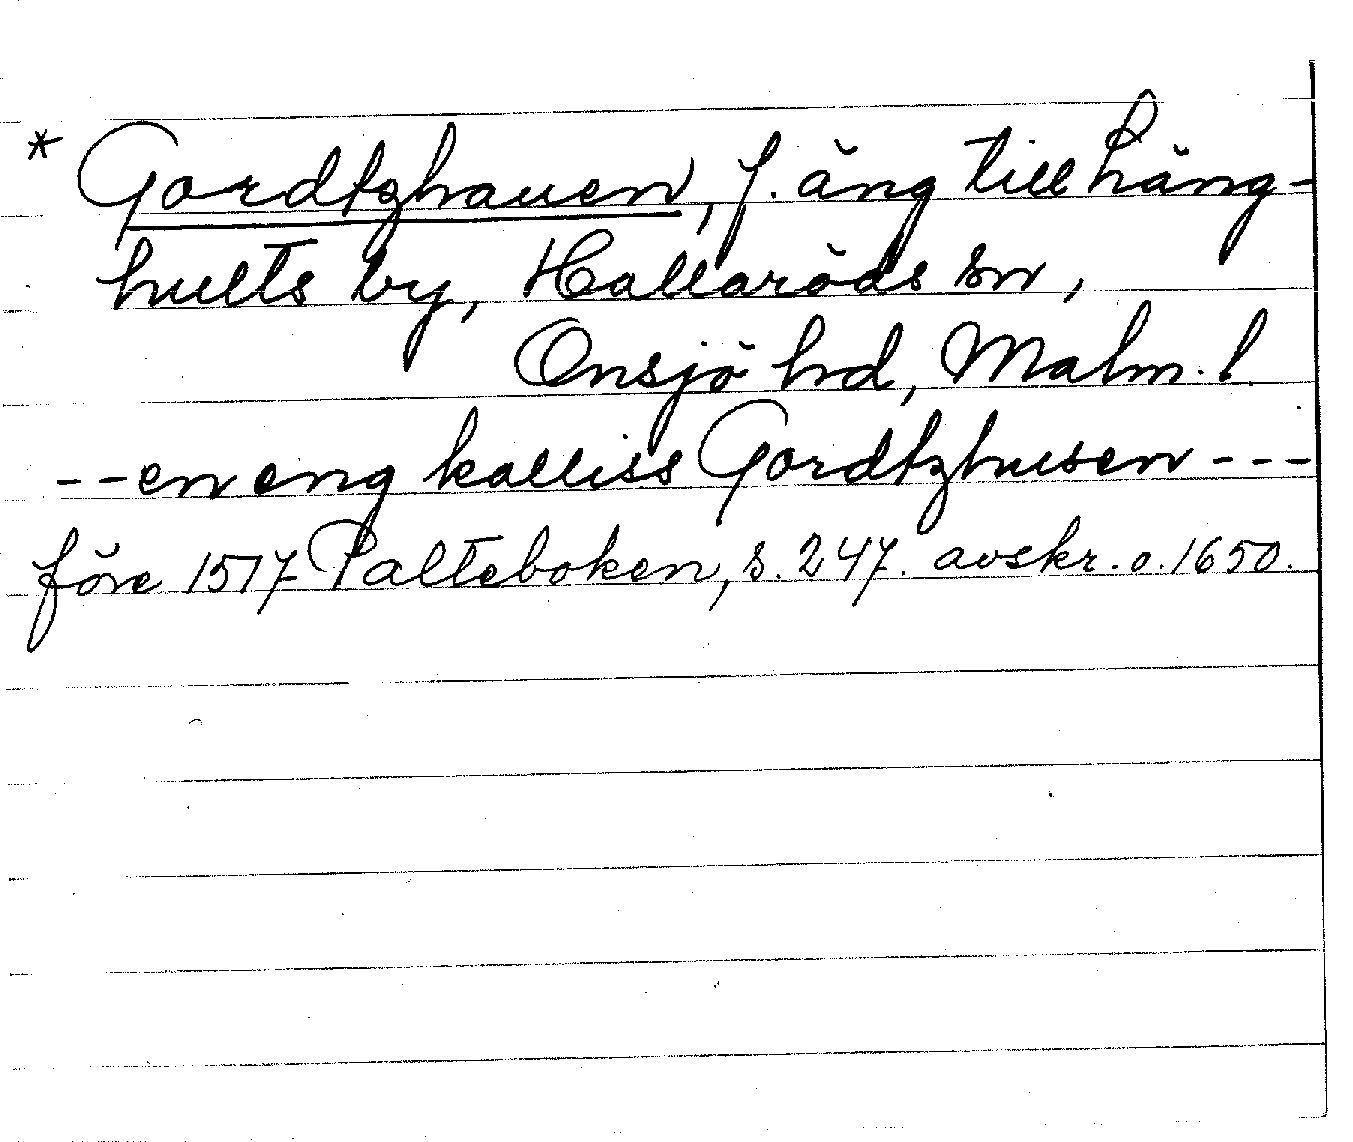 * Gordtzhauen, f. äng till Häng-
hults by, Hallaröds sn,
Onsjö hd, Malm. l.
--en eng kalliss Gordtzhusen ---
före 1517 Palteboken, s. 247. avskr. o. 1650.